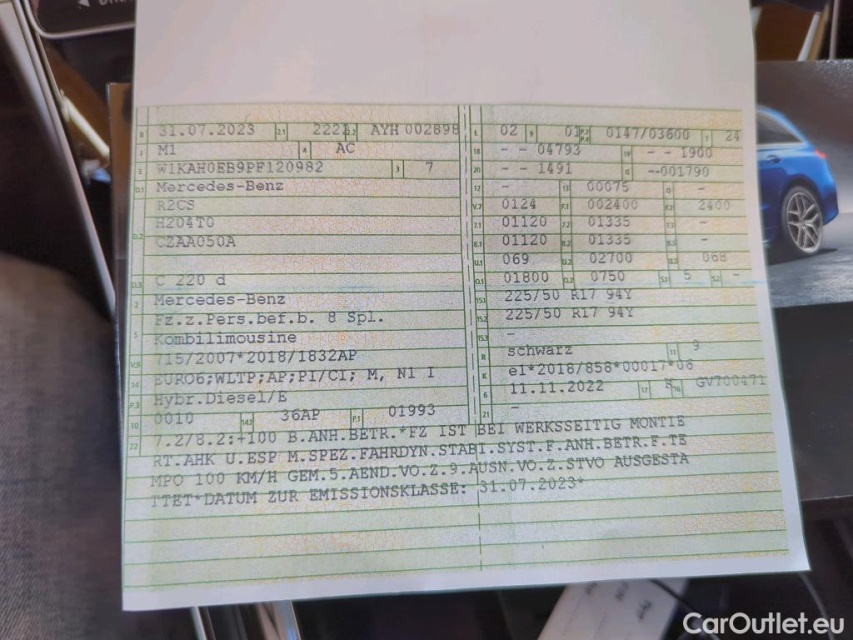 B 31.07.2023 2.1 2222 2.2 AYH 002898
J M1 4 AC
E W1KAH0EB9PF120982 3 7
D.1 Mercedes-Benz
R2CS
D.2 H204T0
CZAA050A
D.3 C 220 d
2 Mercedes-Benz
5 Fz.z.Pers.bef.b. 8 Spl.
Kombilimousine
V.9 715/2007*2018/1832AP
14 EURO6;WLTP;AP;PI/CI; M, N1 I
P.3 Hybr.Diesel/E
10 0010 14.1 36AP P.1 01993
L 02 9 01 P.2 P.4 0147/03600 T 24
18 - - 04793 19 - - 1900
20 - - 1491 G --001790
12 - 13 00075 Q -
V.7 0124 F.1 002400 F.2 2400
7.1 01120 7.2 01335 7.3 -
8.1 01120 8.2 01335 8.3 -
U.1 069 U.2 02700 U.3 068
O.1 01800 O.2 0750 S.1 5 S.2 -
15.1 225/50 R17 94Y
15.2 225/50 R17 94Y
15.3 -
R schwarz 11 9
K e1*2018/858*00017*06
6 11.11.2022 17 K 16 GV700471
21 -
22 7.2/8.2:+100 B.ANH.BETR.*FZ IST BEI WERKSSEITIG MONTIE
RT.AHK U.ESP M.SPEZ.FAHRDYN.STABI.SYST.F.ANH.BETR.F.TE
MPO 100 KM/H GEM.5.AEND.VO.Z.9.AUSN.VO.Z.STVO AUSGESTA
TTET*DATUM ZUR EMISSIONSKLASSE: 31.07.2023*
CarOutlet.eu